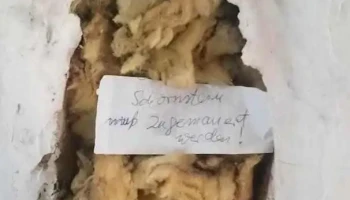 Schornstein
muß zugemauert
werden!